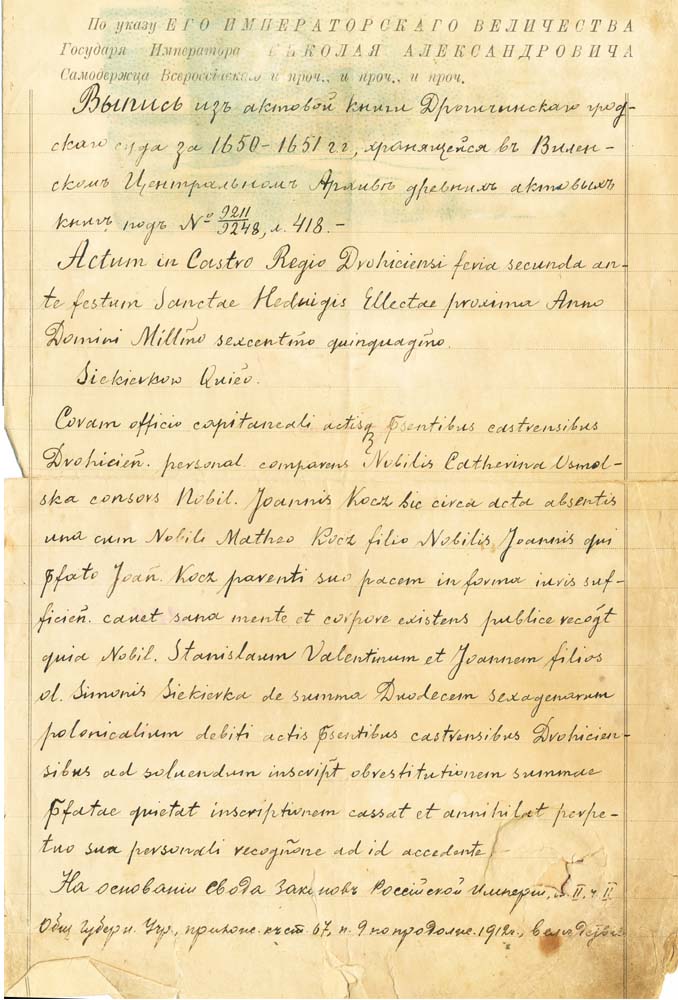 По указу ЕГО ИМПЕРАТОРСКАГО ВЕЛИЧЕСТВА
Государя Императора НИКОЛАЯ АЛЕКСАНДРОВИЧА
Самодержца Всероссійскаго и проч., и проч., и проч.
Выпись изъ актовой книги Дрогичинскаго грод-
скаго суда за 1650-1651 г.г., хранящейся въ Вилен-
скомъ Центральномъ Архивѣ древнихъ актовыхъ
книгъ подъ № 9211/9248, л. 418.-
Actum in Castro Regio Drohiciensi feria secunda an-
te festum Sanctae Heduigis Ellectae proxima Anno
Domini Millmo sexcentmo quinquagmo.
Siekierkow Quieo.
Coram officio capitaneali actisq p̄sentibus castrensibus
Drohicien̄. personal. comparens Nobilis Catherina Usmol-
ska consors Nobil. Joannis Kocz hic circa acta absentis
una cum Nobile Matheo Kocz filio Nobilis Joannis qui
p̄fato Joan̄. Kocz parenti suo pacem in forma iuris suf-
ficien̄. cauet sana mente et corpore existens publice recogt
quia Nobil. Stanislaum Valentinum et Joannem filios
ol. Simonis Siekierka de summa Duodecem sexagenarum
polonicalium debiti actis p̄sentibus castrensibus Drohicien-
sibus ad soluendum inscript obrestitutionem summae
p̄fatae quietat inscriptionem cassat et annihilat perpe-
tuo sua personali recogn̄one ad id accedente.
На основаніи Свода Законовъ Россійской Имперіи, т. II, ч. II
Общ. Губерн. Учр., прилож. къ ст. 67, п. 9 по продолж. 1912 г.,